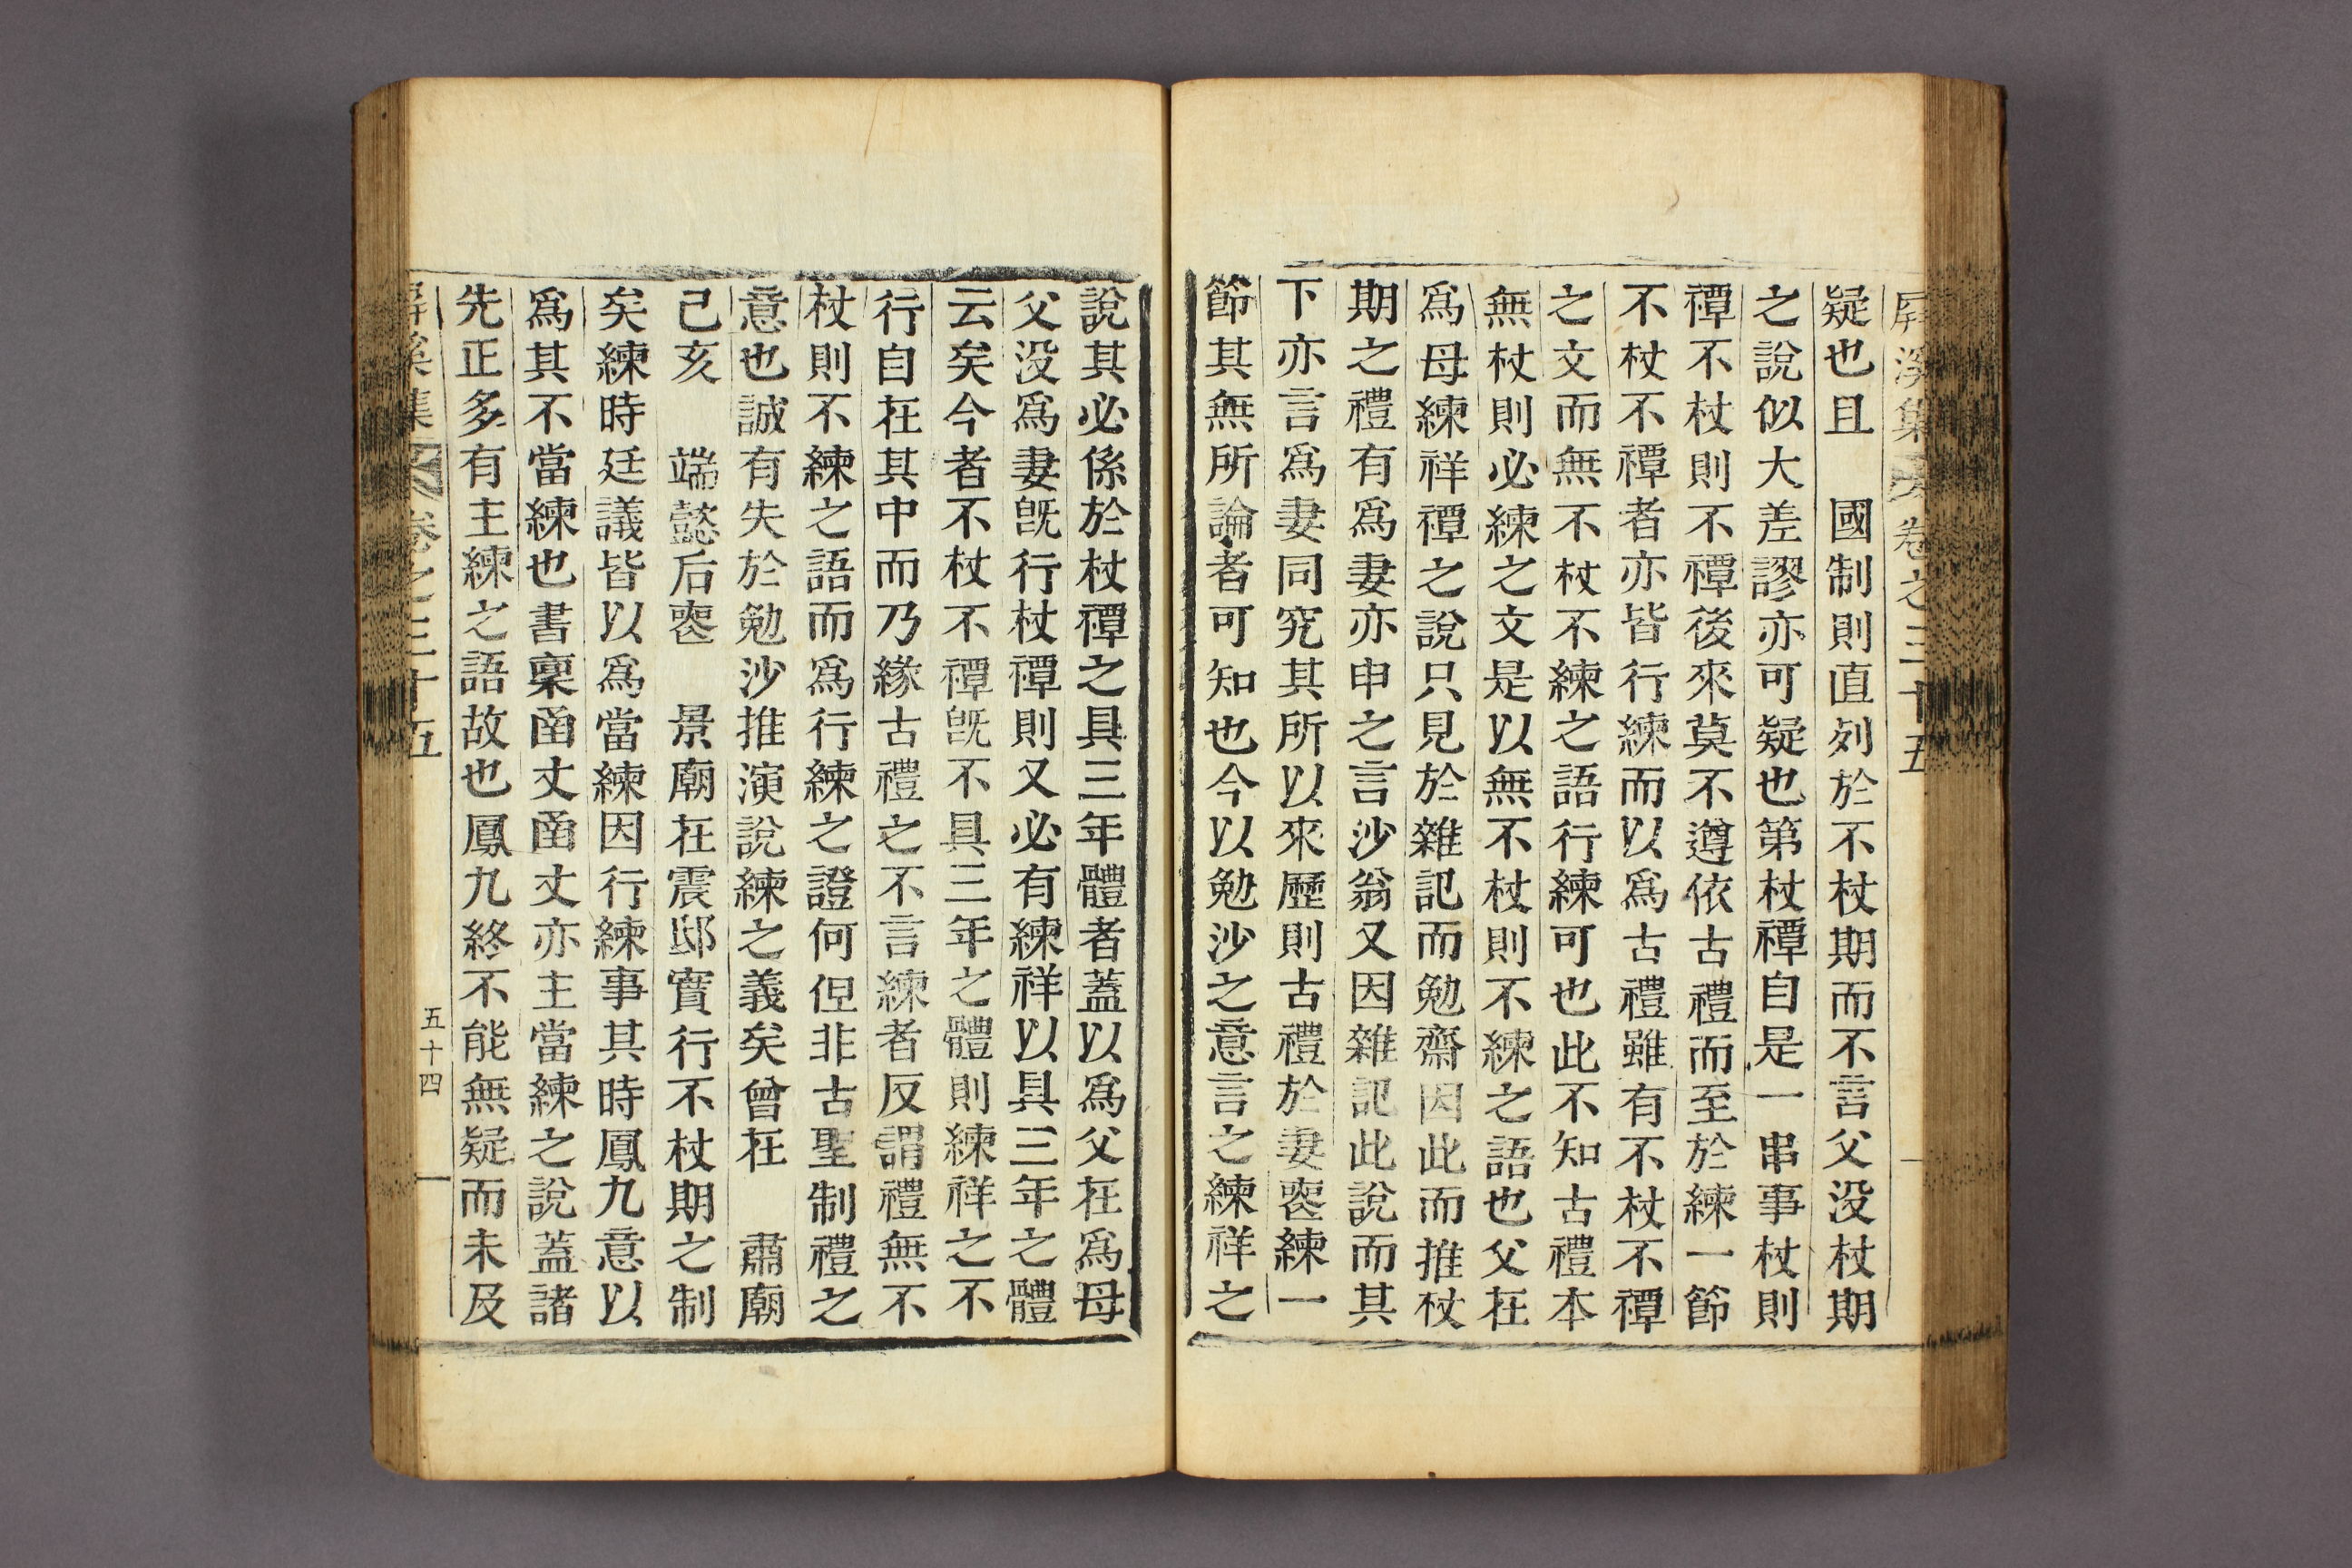 屛溪集 卷之三十五
疑也且 國制則直列於不杖期而不言父没杖期
之說似大差謬亦可疑也第杖禫自是一串事杖則
禫不杖則不禫後來莫不遵依古禮而至於練一節
不杖不禫者亦皆行練而以爲古禮雖有不杖不禫
之文而無不杖不練之語行練可也此不知古禮本
無杖則必練之文是以無不杖則不練之語也父在
爲母練祥禫之說只見於雜記而勉齋因此而推杖
期之禮有爲妻亦申之言沙翁又因雜記此說而其
下亦言爲妻同究其所以來歷則古禮於妻喪練一
節其無所論者可知也今以勉沙之意言之練祥之
說其必係於杖禫之具三年體者蓋以爲父在爲母
父没爲妻旣行杖禫則又必有練祥以具三年之體
云矣今者不杖不禫旣不具三年之體則練祥之不
行自在其中而乃緣古禮之不言練者反謂禮無不
杖則不練之語而爲行練之證何但非古聖制禮之
意也誠有失於勉沙推演說練之義矣曾在 肅廟
己亥 端懿后喪 景廟在震邸實行不杖期之制
矣練時廷議皆以爲當練因行練事其時鳳九意以
爲其不當練也書稟函丈函丈亦主當練之說蓋諸
先正多有主練之語故也鳳九終不能無疑而未及
屛溪集 卷之三十五 五十四